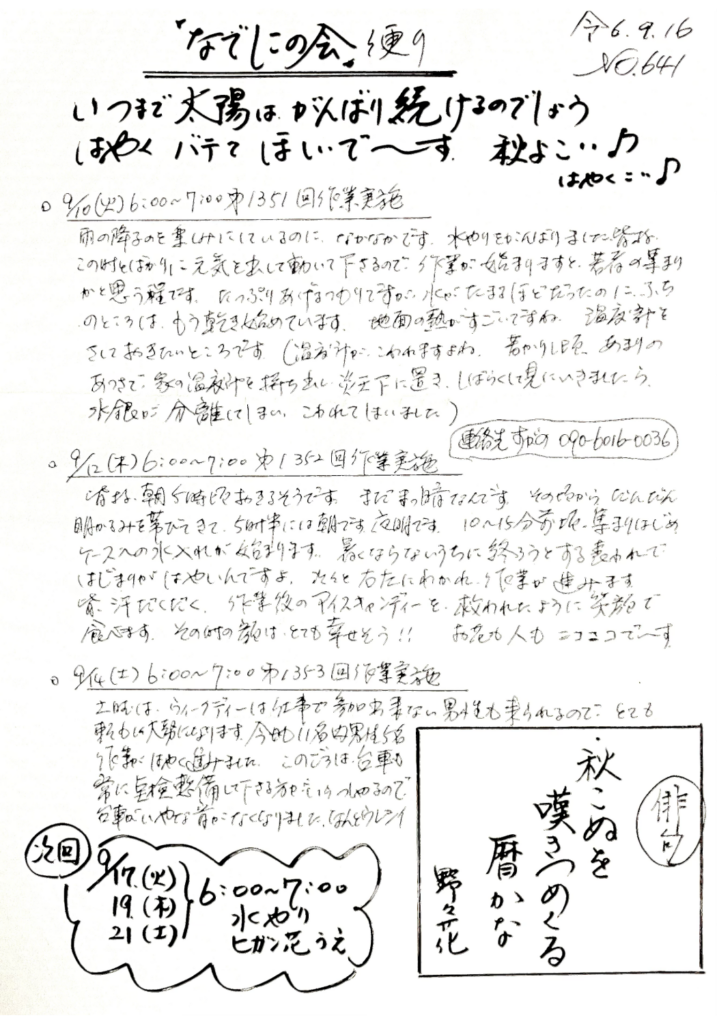 「なでしこの会」便り
令6.9.16
NO.641
いつまで太陽は がんばり続けるのでしょう
はやく バテて ほしいで〜す 秋よこい♪
はやくこい♪
9/10(火)6:00〜7:00第1351回作業実施
雨の降るのを楽しみにしているのに、なかなかです。水やりをがんばりました。皆様、
この時とばかりに元気を出して動いて下さるので、作業が始まりますと、若者の集まり
かと思う程です。たっぷりあげたつもりですが、水がたまるほどだったのに、ふち
のところは、もう乾き始めています。地面の熱がすごいですね。温度計を
さしておきたいところです(温度計が、こわれますよね。若かりし頃、あまりの
あつさで、家の温度計を持ち出し炎天下に置き、しばらくして見にいきましたら、
水銀が分離してしまい、こわれてしまいました)
連絡先 すがの 090-6016-0036
9/12(木)6:00〜7:00第1352回作業実施
皆様、朝5時頃おきるそうです。まだまっ暗なんです。その頃から だんだん
明かるみを帯びてきて、5時半には朝です。夜明です。10〜15分前頃、集まりはじめ
ケースへの水入れが始まります。暑くならないうちに終ろうとする表われで
はじまりがはやいんですよ。次々と右左にわかれ、作業が進みます
皆、汗だくだく、作業後のアイスキャンディーを、救われたように笑顔で
食べます。その時の顔は、とても幸せそう!! お花も人もニコニコで〜す
9/14(土)6:00〜7:00第1353回作業実施
土曜は、ウィークデーは仕事で参加出来ない男性も来られるので、とても
大勢になります。今日も11名内男性5名
作業がはやく進みました。このごろは、台車も
常に点検整備して下さる方が
台車がいやな音がなくなりました。なんとウレシイ
次回
9/17(火)
19(木)
21(土)
6:00〜7:00
水やり
ヒガン花うえ
俳句
秋こぬを
嘆きつめくる
暦かな
野々花